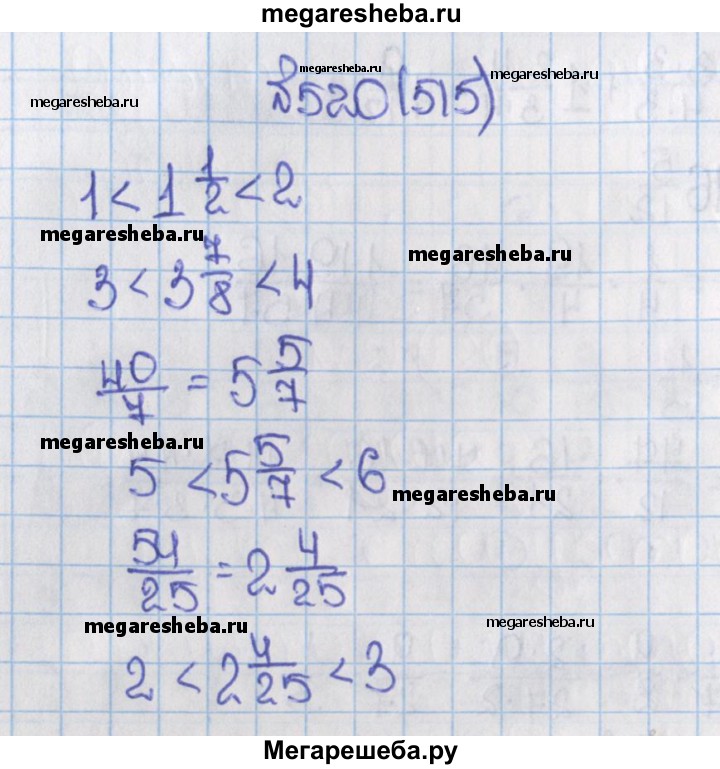 megaresheba.ru
megaresheba.ru
megaresheba.ru
megaresheba.ru
№520(515)
1 < 1 1/2 < 2
megaresheba.ru
megaresheba.ru
3 < 3 7/8 < 4
40/7 = 5 5/7
megaresheba.ru
5 < 5 5/7 < 6
megaresheba.ru
54/25 = 2 4/25
megaresheba.ru
megaresheba.ru
2 < 2 4/25 < 3
Мегарешеба.ру